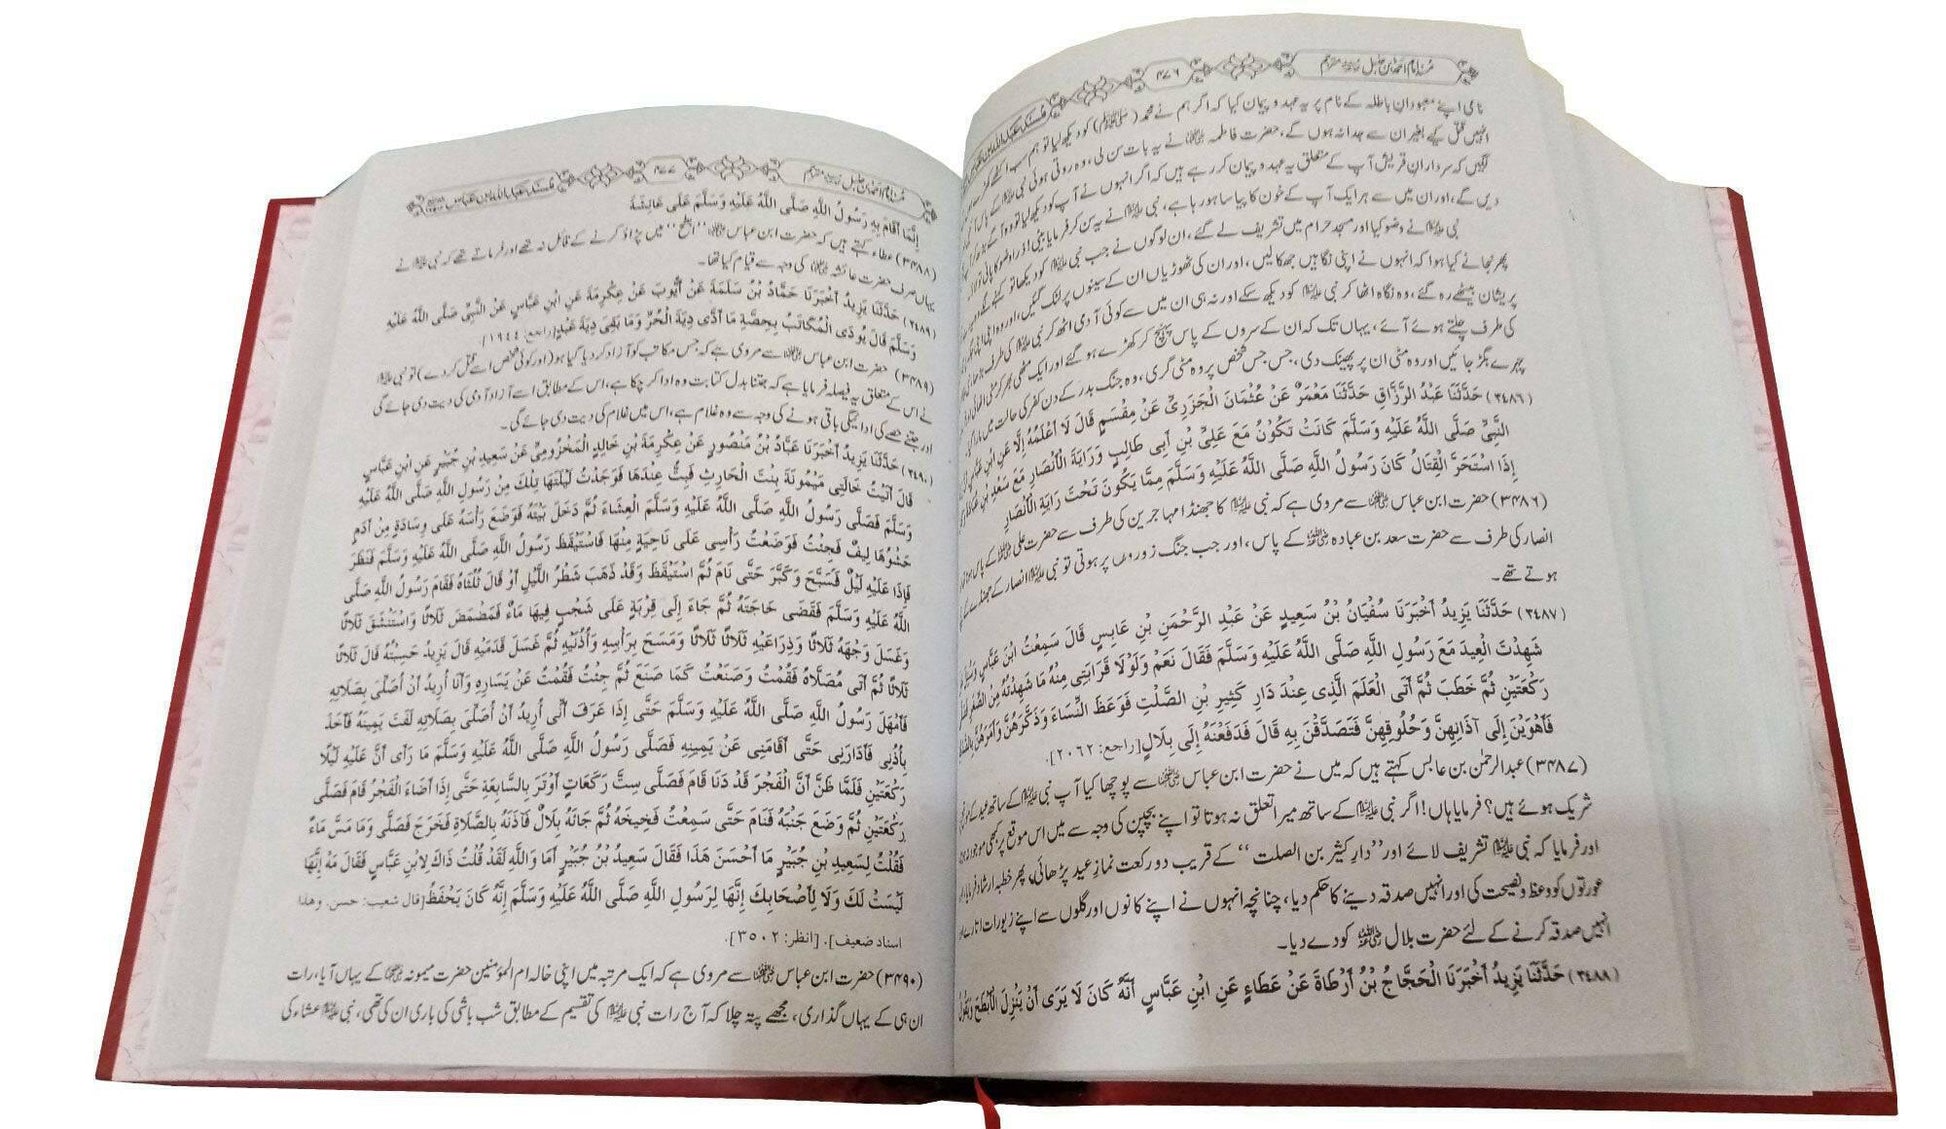 مُسندِ امام احمد بن حنبل مترجم ۴۷۶ مُسنَد عبد اللہ بن عباس
نامی اپنے معبودانِ باطلہ کے نام پر یہ عہد و پیمان کیا کہ اگر ہم نے محمد (ﷺ) کو دیکھ لیا تو ہم سب اکٹھے
انہیں قتل کیے بغیر ان سے جدا نہ ہوں گے، حضرت فاطمہ ؓ نے یہ بات سن لی، وہ روتی ہوئی نبی علیہ السلام کے پاس
لگیں کہ سردارانِ قریش آپ کے متعلق یہ عہد و پیمان کر رہے ہیں کہ اگر انہوں نے آپ کو دیکھ لیا تو وہ آگے بڑھ کر
دیں گے، اور ان میں سے ہر ایک آپ کے خون کا پیاسا ہو رہا ہے، نبی علیہ السلام نے یہ سن کر فرمایا بیٹی! ذرا وضو کا پانی تو لاؤ
نبی علیہ السلام نے وضو کیا اور مسجد حرام میں تشریف لے گئے، ان لوگوں نے جب نبی علیہ السلام کو دیکھا تو کہنے لگے
پھر نجانے کیا ہوا کہ انہوں نے اپنی نگاہیں جھکا لیں، اور ان کی ٹھوڑیاں ان کے سینوں پر لٹک گئیں، اور وہ اپنی اپنی
پریشان بیٹھے رہ گئے، وہ نگاہ اٹھا کر نبی علیہ السلام کو دیکھ سکے اور نہ ہی ان میں سے کوئی آدمی اٹھ کر نبی علیہ السلام کی طرف
کی طرف چلتے ہوئے آئے، یہاں تک کہ ان کے سروں کے پاس پہنچ کر کھڑے ہو گئے اور ایک مٹھی بھر کر مٹی اٹھائی
چہرے بگڑ جائیں اور وہ مٹی ان پر پھینک دی، جس جس شخص پر وہ مٹی گری، وہ جنگ بدر کے دن کفر کی حالت میں مارا
(٣٤٨٦) حَدَّثَنَا عَبْدُ الرَّزَّاقِ حَدَّثَنَا مَعْمَرٌ عَنْ عُثْمَانَ الْجَزَرِيِّ عَنْ مِقْسَمٍ قَالَ لَا أَعْلَمُهُ إِلَّا عَنِ ابْنِ عَبَّاسٍ
النَّبِيِّ صَلَّى اللَّهُ عَلَيْهِ وَسَلَّمَ كَانَتْ تَكُونُ مَعَ عَلِيِّ بْنِ أَبِي طَالِبٍ وَرَايَةُ الْأَنْصَارِ مَعَ سَعْدِ بْنِ عُبَادَةَ
إِذَا اسْتَحَرَّ الْقِتَالُ كَانَ رَسُولُ اللَّهِ صَلَّى اللَّهُ عَلَيْهِ وَسَلَّمَ مِمَّا يَكُونُ تَحْتَ رَايَةِ الْأَنْصَارِ
(۳۴۸۶) حضرت ابن عباس ؓ سے مروی ہے کہ نبی علیہ السلام کا جھنڈا مہاجرین کی طرف سے حضرت علی ؓ کے پاس
انصار کی طرف سے حضرت سعد بن عبادہ ؓ کے پاس، اور جب جنگ زوروں پر ہوتی تو نبی علیہ السلام انصار کے جھنڈے کے
ہوتے تھے۔
(٣٤٨٧) حَدَّثَنَا يَزِيدُ أَخْبَرَنَا سُفْيَانُ بْنُ سَعِيدٍ عَنْ عَبْدِ الرَّحْمَنِ بْنِ عَابِسٍ قَالَ سَمِعْتُ ابْنَ عَبَّاسٍ وَسُئِلَ
شَهِدْتَ الْعِيدَ مَعَ رَسُولِ اللَّهِ صَلَّى اللَّهُ عَلَيْهِ وَسَلَّمَ فَقَالَ نَعَمْ وَلَوْلَا قَرَابَتِي مِنْهُ مَا شَهِدْتُهُ مِنَ الصِّغَرِ
رَكْعَتَيْنِ ثُمَّ خَطَبَ ثُمَّ أَتَى الْعَلَمَ الَّذِي عِنْدَ دَارِ كَثِيرِ بْنِ الصَّلْتِ فَوَعَظَ النِّسَاءَ وَذَكَّرَهُنَّ وَأَمَرَهُنَّ
فَأَهْوَيْنَ إِلَى آذَانِهِنَّ وَحُلُوقِهِنَّ فَتَصَدَّقْنَ بِهِ قَالَ فَدَفَعْنَهُ إِلَى بِلَالٍ [راجع: ٢٠٦٢].
(۳۴۸۷) عبدالرحمٰن بن عابس کہتے ہیں کہ میں نے حضرت ابن عباس ؓ سے پوچھا کیا آپ نبی علیہ السلام کے ساتھ عید کے موقع پر
شریک ہوئے ہیں؟ فرمایا ہاں! اگر نبی علیہ السلام کے ساتھ میرا تعلق نہ ہوتا تو اپنے بچپن کی وجہ سے میں اس موقع پر کبھی موجود نہ
اور فرمایا کہ نبی علیہ السلام تشریف لائے اور ”دار کثیر بن الصلت“ کے قریب دو رکعت نماز عید پڑھائی، پھر خطبہ ارشاد فرمایا
عورتوں کو وعظ و نصیحت کی اور انہیں صدقہ دینے کا حکم دیا، چنانچہ انہوں نے اپنے کانوں اور گلوں سے اپنے زیورات اتارے اور
انہیں صدقہ کرنے کے لئے حضرت بلال ؓ کو دے دیا۔
(٣٤٨٨) حَدَّثَنَا يَزِيدُ أَخْبَرَنَا الْحَجَّاجُ بْنُ أَرْطَاةَ عَنْ عَطَاءٍ عَنِ ابْنِ عَبَّاسٍ أَنَّهُ كَانَ لَا يَرَى أَنْ يَنْزِلَ الْأَبْطَحَ وَيَقُولُ
مُسندِ امام احمد بن حنبل مترجم ۴۷۷ مُسنَد عبد اللہ بن عباس
إِنَّمَا أَقَامَ بِهِ رَسُولُ اللَّهِ صَلَّى اللَّهُ عَلَيْهِ وَسَلَّمَ عَلَى عَائِشَةَ
(۳۴۸۸) عطاء کہتے ہیں کہ حضرت ابن عباس ؓ ”ابطح“ میں پڑاؤ کرنے کے قائل نہ تھے اور فرماتے تھے کہ نبی علیہ السلام نے
یہاں صرف حضرت عائشہ ؓ کی وجہ سے قیام کیا تھا۔
(٣٤٨٩) حَدَّثَنَا يَزِيدُ أَخْبَرَنَا حَمَّادُ بْنُ سَلَمَةَ عَنْ أَيُّوبَ عَنْ عِكْرِمَةَ عَنِ ابْنِ عَبَّاسٍ عَنِ النَّبِيِّ صَلَّى اللَّهُ عَلَيْهِ
وَسَلَّمَ قَالَ يُودَى الْمُكَاتَبُ بِحِصَّةِ مَا أَدَّى دِيَةَ الْحُرِّ وَمَا بَقِيَ دِيَةَ عَبْدٍ [راجع: ١٩٤٤]
(۳۴۸۹) حضرت ابن عباس ؓ سے مروی ہے کہ جس مکاتب کو آزاد کر دیا گیا ہو (اور کوئی شخص اسے قتل کر دے) تو نبی علیہ السلام
نے اس کے متعلق یہ فیصلہ فرمایا ہے کہ جتنا بدل کتابت وہ ادا کر چکا ہے، اس کے مطابق اسے آزاد آدمی کی دیت دی جائے گی
اور جتنے حصے کی ادائیگی باقی ہونے کی وجہ سے وہ غلام ہے، اس میں غلام کی دیت دی جائے گی۔
(٣٤٩٠) حَدَّثَنَا يَزِيدُ أَخْبَرَنَا عَبَّادُ بْنُ مَنْصُورٍ عَنْ عِكْرِمَةَ بْنِ خَالِدٍ الْمَخْزُومِيِّ عَنْ سَعِيدِ بْنِ جُبَيْرٍ عَنِ ابْنِ عَبَّاسٍ
قَالَ أَتَيْتُ خَالَتِي مَيْمُونَةَ بِنْتَ الْحَارِثِ فَبِتُّ عِنْدَهَا فَوَجَدْتُ لَيْلَتَهَا تِلْكَ مِنْ رَسُولِ اللَّهِ صَلَّى اللَّهُ عَلَيْهِ
وَسَلَّمَ فَصَلَّى رَسُولُ اللَّهِ صَلَّى اللَّهُ عَلَيْهِ وَسَلَّمَ الْعِشَاءَ ثُمَّ دَخَلَ بَيْتَهُ فَوَضَعَ رَأْسَهُ عَلَى وِسَادَةٍ مِنْ أَدَمٍ
حَشْوُهَا لِيفٌ فَجِئْتُ فَوَضَعْتُ رَأْسِي عَلَى نَاحِيَةٍ مِنْهَا فَاسْتَيْقَظَ رَسُولُ اللَّهِ صَلَّى اللَّهُ عَلَيْهِ وَسَلَّمَ فَنَظَرَ
فَإِذَا عَلَيْهِ لَيْلٌ فَسَبَّحَ وَكَبَّرَ حَتَّى نَامَ ثُمَّ اسْتَيْقَظَ وَقَدْ ذَهَبَ شَطْرُ اللَّيْلِ أَوْ قَالَ ثُلُثَاهُ فَقَامَ رَسُولُ اللَّهِ صَلَّى
اللَّهُ عَلَيْهِ وَسَلَّمَ فَقَضَى حَاجَتَهُ ثُمَّ جَاءَ إِلَى قِرْبَةٍ عَلَى شَجْبٍ فِيهَا مَاءٌ فَمَضْمَضَ ثَلَاثًا وَاسْتَنْشَقَ ثَلَاثًا
وَغَسَلَ وَجْهَهُ ثَلَاثًا وَذِرَاعَيْهِ ثَلَاثًا ثَلَاثًا وَمَسَحَ بِرَأْسِهِ وَأُذُنَيْهِ ثُمَّ غَسَلَ قَدَمَيْهِ قَالَ يَزِيدُ حَسِبْتُهُ قَالَ ثَلَاثًا
ثَلَاثًا ثُمَّ أَتَى مُصَلَّاهُ فَقُمْتُ وَصَنَعْتُ كَمَا صَنَعَ ثُمَّ جِئْتُ فَقُمْتُ عَنْ يَسَارِهِ وَأَنَا أُرِيدُ أَنْ أُصَلِّيَ بِصَلَاتِهِ
فَأَمْهَلَ رَسُولُ اللَّهِ صَلَّى اللَّهُ عَلَيْهِ وَسَلَّمَ حَتَّى إِذَا عَرَفَ أَنِّي أُرِيدُ أَنْ أُصَلِّيَ بِصَلَاتِهِ لَفَتَ يَمِينَهُ فَأَخَذَ
بِأُذُنِي فَأَدَارَنِي حَتَّى أَقَامَنِي عَنْ يَمِينِهِ فَصَلَّى رَسُولُ اللَّهِ صَلَّى اللَّهُ عَلَيْهِ وَسَلَّمَ مَا رَأَى أَنَّ عَلَيْهِ لَيْلًا
رَكْعَتَيْنِ فَلَمَّا ظَنَّ أَنَّ الْفَجْرَ قَدْ دَنَا قَامَ فَصَلَّى سِتَّ رَكَعَاتٍ أَوْتَرَ بِالسَّابِعَةِ حَتَّى إِذَا أَضَاءَ الْفَجْرُ قَامَ فَصَلَّى
رَكْعَتَيْنِ ثُمَّ وَضَعَ جَنْبَهُ فَنَامَ حَتَّى سَمِعْتُ فَخِيخَهُ ثُمَّ جَائَهُ بِلَالٌ فَآذَنَهُ بِالصَّلَاةِ فَخَرَجَ فَصَلَّى وَمَا مَسَّ مَاءً
فَقُلْتُ لِسَعِيدِ بْنِ جُبَيْرٍ مَا أَحْسَنَ هَذَا فَقَالَ سَعِيدُ بْنُ جُبَيْرٍ أَمَا وَاللَّهِ لَقَدْ قُلْتُ ذَاكَ لِابْنِ عَبَّاسٍ فَقَالَ مَهْ إِنَّهَا
لَيْسَتْ لَكَ وَلَا لِأَصْحَابِكَ إِنَّهَا لِرَسُولِ اللَّهِ صَلَّى اللَّهُ عَلَيْهِ وَسَلَّمَ إِنَّهُ كَانَ يَحْفَظُ [قال شعيب: حسن. وهذا
اسناد ضعيف]. [انظر: ٣٥٠٢].
(۳۴۹۰) حضرت ابن عباس ؓ سے مروی ہے کہ ایک مرتبہ میں اپنی خالہ ام المؤمنین حضرت میمونہ ؓ کے یہاں آیا، رات
ان ہی کے یہاں گذاری، مجھے پتہ چلا کہ آج رات نبی علیہ السلام کی تقسیم کے مطابق شب باشی کی باری ان کی تھی، نبی علیہ السلام عشاء کی